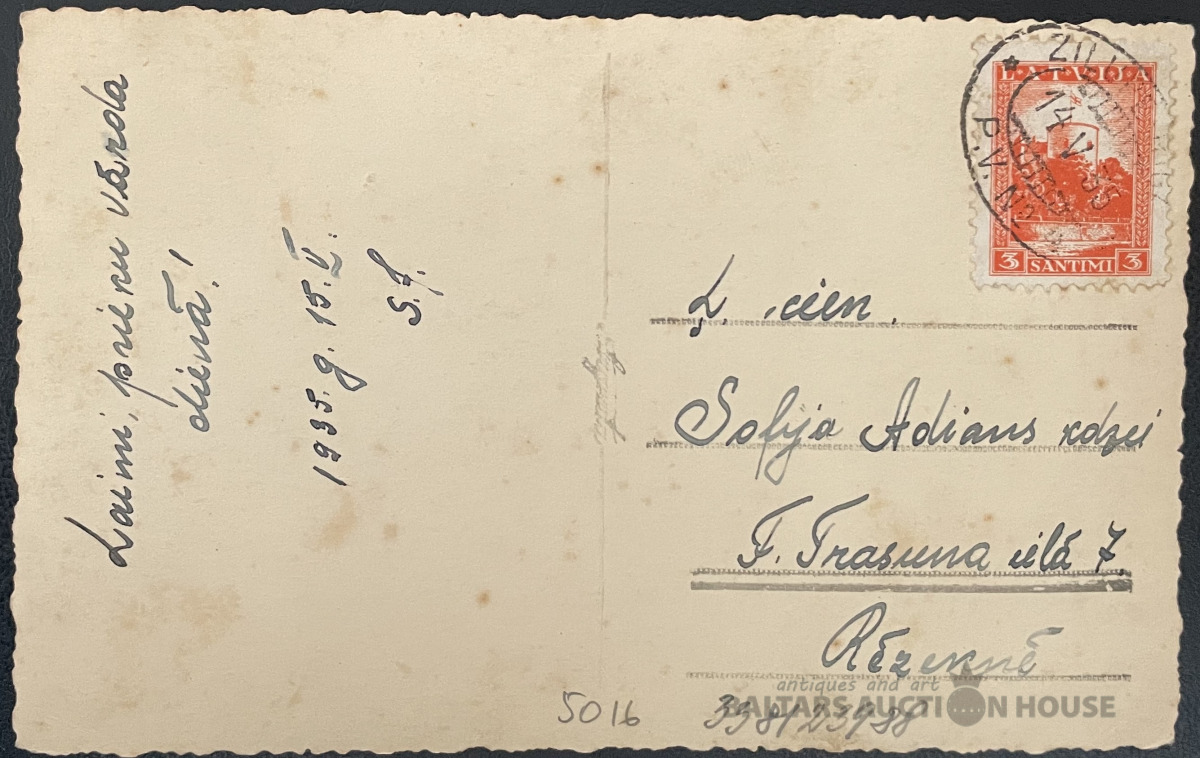 Laimi, prieku vārda
dienā!
1935. g. 15. V.
S. J.
LATVIJA
14 V 35
P.V.N
3 SANTIMI 3
Ļ. cien.
Sofija Adians kdzei
F. Trasuna ielā 7.
Rēzeknē
5016
antiques and art
BALTARS AUCTION HOUSE